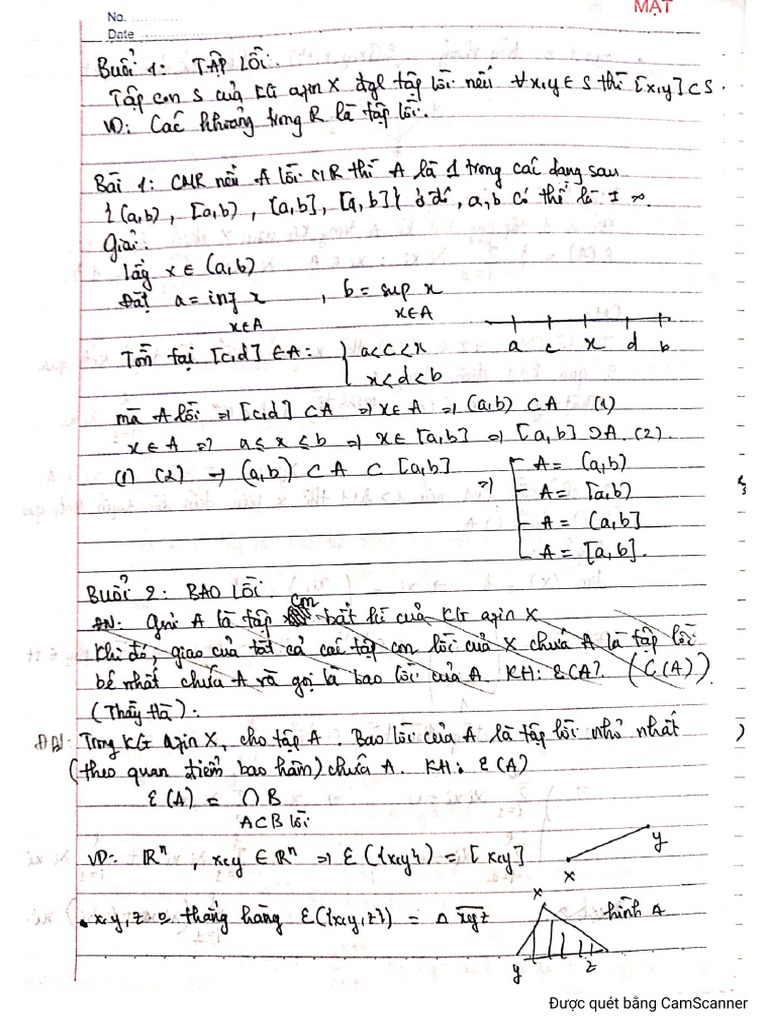 MẶT
No. ............
Date ....................
Buổi 1: TẬP LỒI.
Tập con S của KG afin X đgl tập lồi nếu ∀x,y ∈ S thì [x,y] ⊂ S.
VD: Các khoảng trong R là tập lồi.
Bài 1: CMR nếu A lồi ⊂ R thì A là 1 trong các dạng sau
{(a,b), [a,b), (a,b], [a,b]} ở đó, a,b có thể là ± ∞.
Giải:
Lấy x ∈ (a,b)
Đặt a = inf x , b = sup x
x∈A x∈A
Tồn tại [c,d] ∈ A: { a<c<x
x<d<b
a c x d b
mà A lồi ⇒ [c,d] ⊂ A ⇒ x∈A ⇒ (a,b) ⊂ A (1)
x∈A ⇒ a ≤ x ≤ b ⇒ x∈ [a,b] ⇒ [a,b] ⊃ A. (2).
(1) (2) → (a,b) ⊂ A ⊂ [a,b] ⇒ [ A = (a,b)
A = [a,b)
A = (a,b]
A = [a,b].
Buổi 2: BAO LỒI.
ĐN: Giả A là tập con bất kì của KG afin X
Khi đó, giao của tất cả các tập con lồi của X chứa A là tập lồi
bé nhất chứa A và gọi là bao lồi của A. KH: ε(A). (C(A))
(Thầy Hà):
ĐN: Trong KG afin X, cho tập A. Bao lồi của A là tập lồi nhỏ nhất
(theo quan điểm bao hàm) chứa A. KH: ε(A)
ε(A) = ∩ B
A⊂B lồi
VD: ℝⁿ, x,y ∈ ℝⁿ ⇒ ε({x,y}) = [x,y]
x y
• x,y,z o thẳng hàng ε({x,y,z}) = Δ xyz
hình Δ
x
y z
Được quét bằng CamScanner